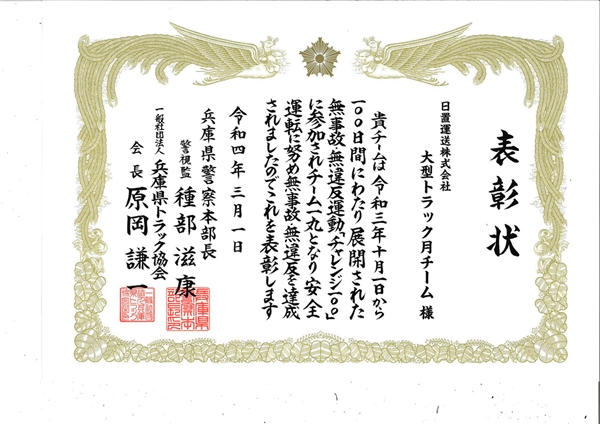 表彰状
日置運送株式会社
大型トラック月チーム 様
貴チームは令和三年十月一日から
一〇〇日間にわたり展開された
無事故・無違反運動「チャレンジ一〇〇」
に参加されチーム一丸となり安全
運転に努め無事故・無違反を達成
されましたのでこれを表彰します
令和四年三月一日
兵庫県警察本部長
警視監 種部滋康
一般社団法人 兵庫県トラック協会
会長 原岡謙一